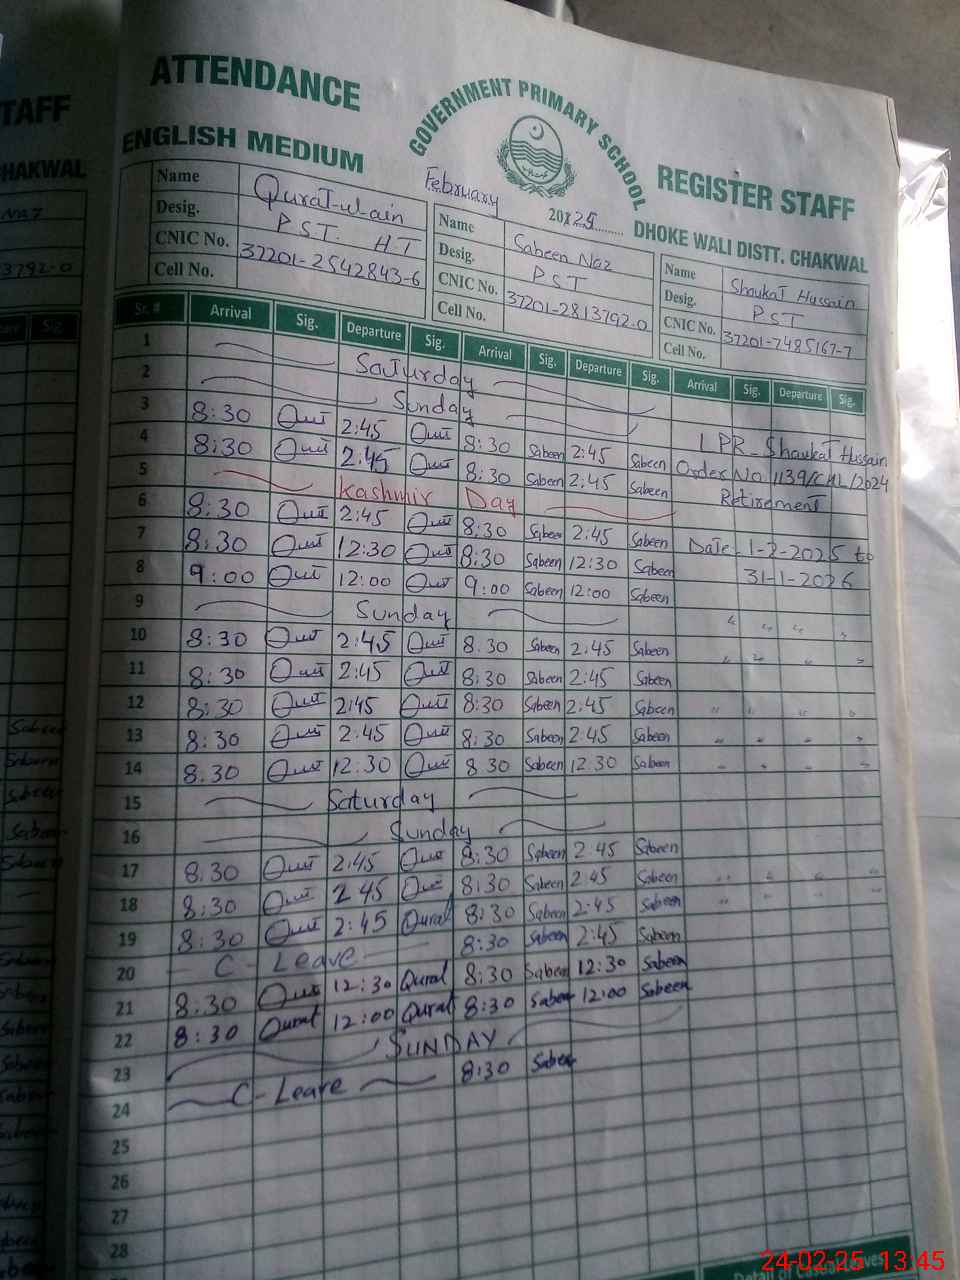 TAFF
HAKWAL
Naz
3792-0
ATTENDANCE
GOVERNMENT PRIMARY SCHOOL
REGISTER STAFF
ENGLISH MEDIUM
February
2025
DHOKE WALI DISTT. CHAKWAL
Name Qurat-ul-ain
Desig. PST. HT
CNIC No. 37201-2542843-6
Cell No.
Name Sabeen Naz
Desig. PST
CNIC No. 37201-2813792-0
Cell No.
Name Shaukat Hussain
Desig. PST
CNIC No. 37201-7485167-7
Cell No.
Sr. # Arrival Sig. Departure Sig. Arrival Sig. Departure Sig. Arrival Sig. Departure Sig.
1 Saturday
2 Sunday
3 8:30 2:45 8:30 Sabeen 2:45 Sabeen LPR - Shaukat Hussain
4 8:30 2:45 8:30 Sabeen 2:45 Sabeen Order No. 1139/CHL/2024
5 Kashmir Day Retirement
6 8:30 2:45 8:30 Sabeen 2:45 Sabeen Date - 1-2-2025 to
7 8:30 12:30 8:30 Sabeen 12:30 Sabeen 31-1-2026
8 9:00 12:00 9:00 Sabeen 12:00 Sabeen
9 Sunday
10 8:30 2:45 8:30 Sabeen 2:45 Sabeen
11 8:30 2:45 8:30 Sabeen 2:45 Sabeen
12 8:30 2:45 8:30 Sabeen 2:45 Sabeen
13 8:30 2:45 8:30 Sabeen 2:45 Sabeen
14 8.30 12:30 8 30 Sabeen 12:30 Sabeen
15 Saturday
16 Sunday
17 8:30 2:45 8:30 Sabeen 2:45 Sabeen
18 8:30 2 45 8:30 Sabeen 2:45 Sabeen
19 8:30 2:45 Qurat 8:30 Sabeen 2:45 Sabeen
20 C-Leave 8:30 Sabeen 2:45 Sabeen
21 8:30 12:30 Qurat 8:30 Sabeen 12:30 Sabeen
22 8:30 Qurat 12:00 Qurat 8:30 Sabeen 12:00 Sabeen
23 SUNDAY
24 C-Leave 8:30 Sabeen
25
26
27
28
24-02-25 13:45